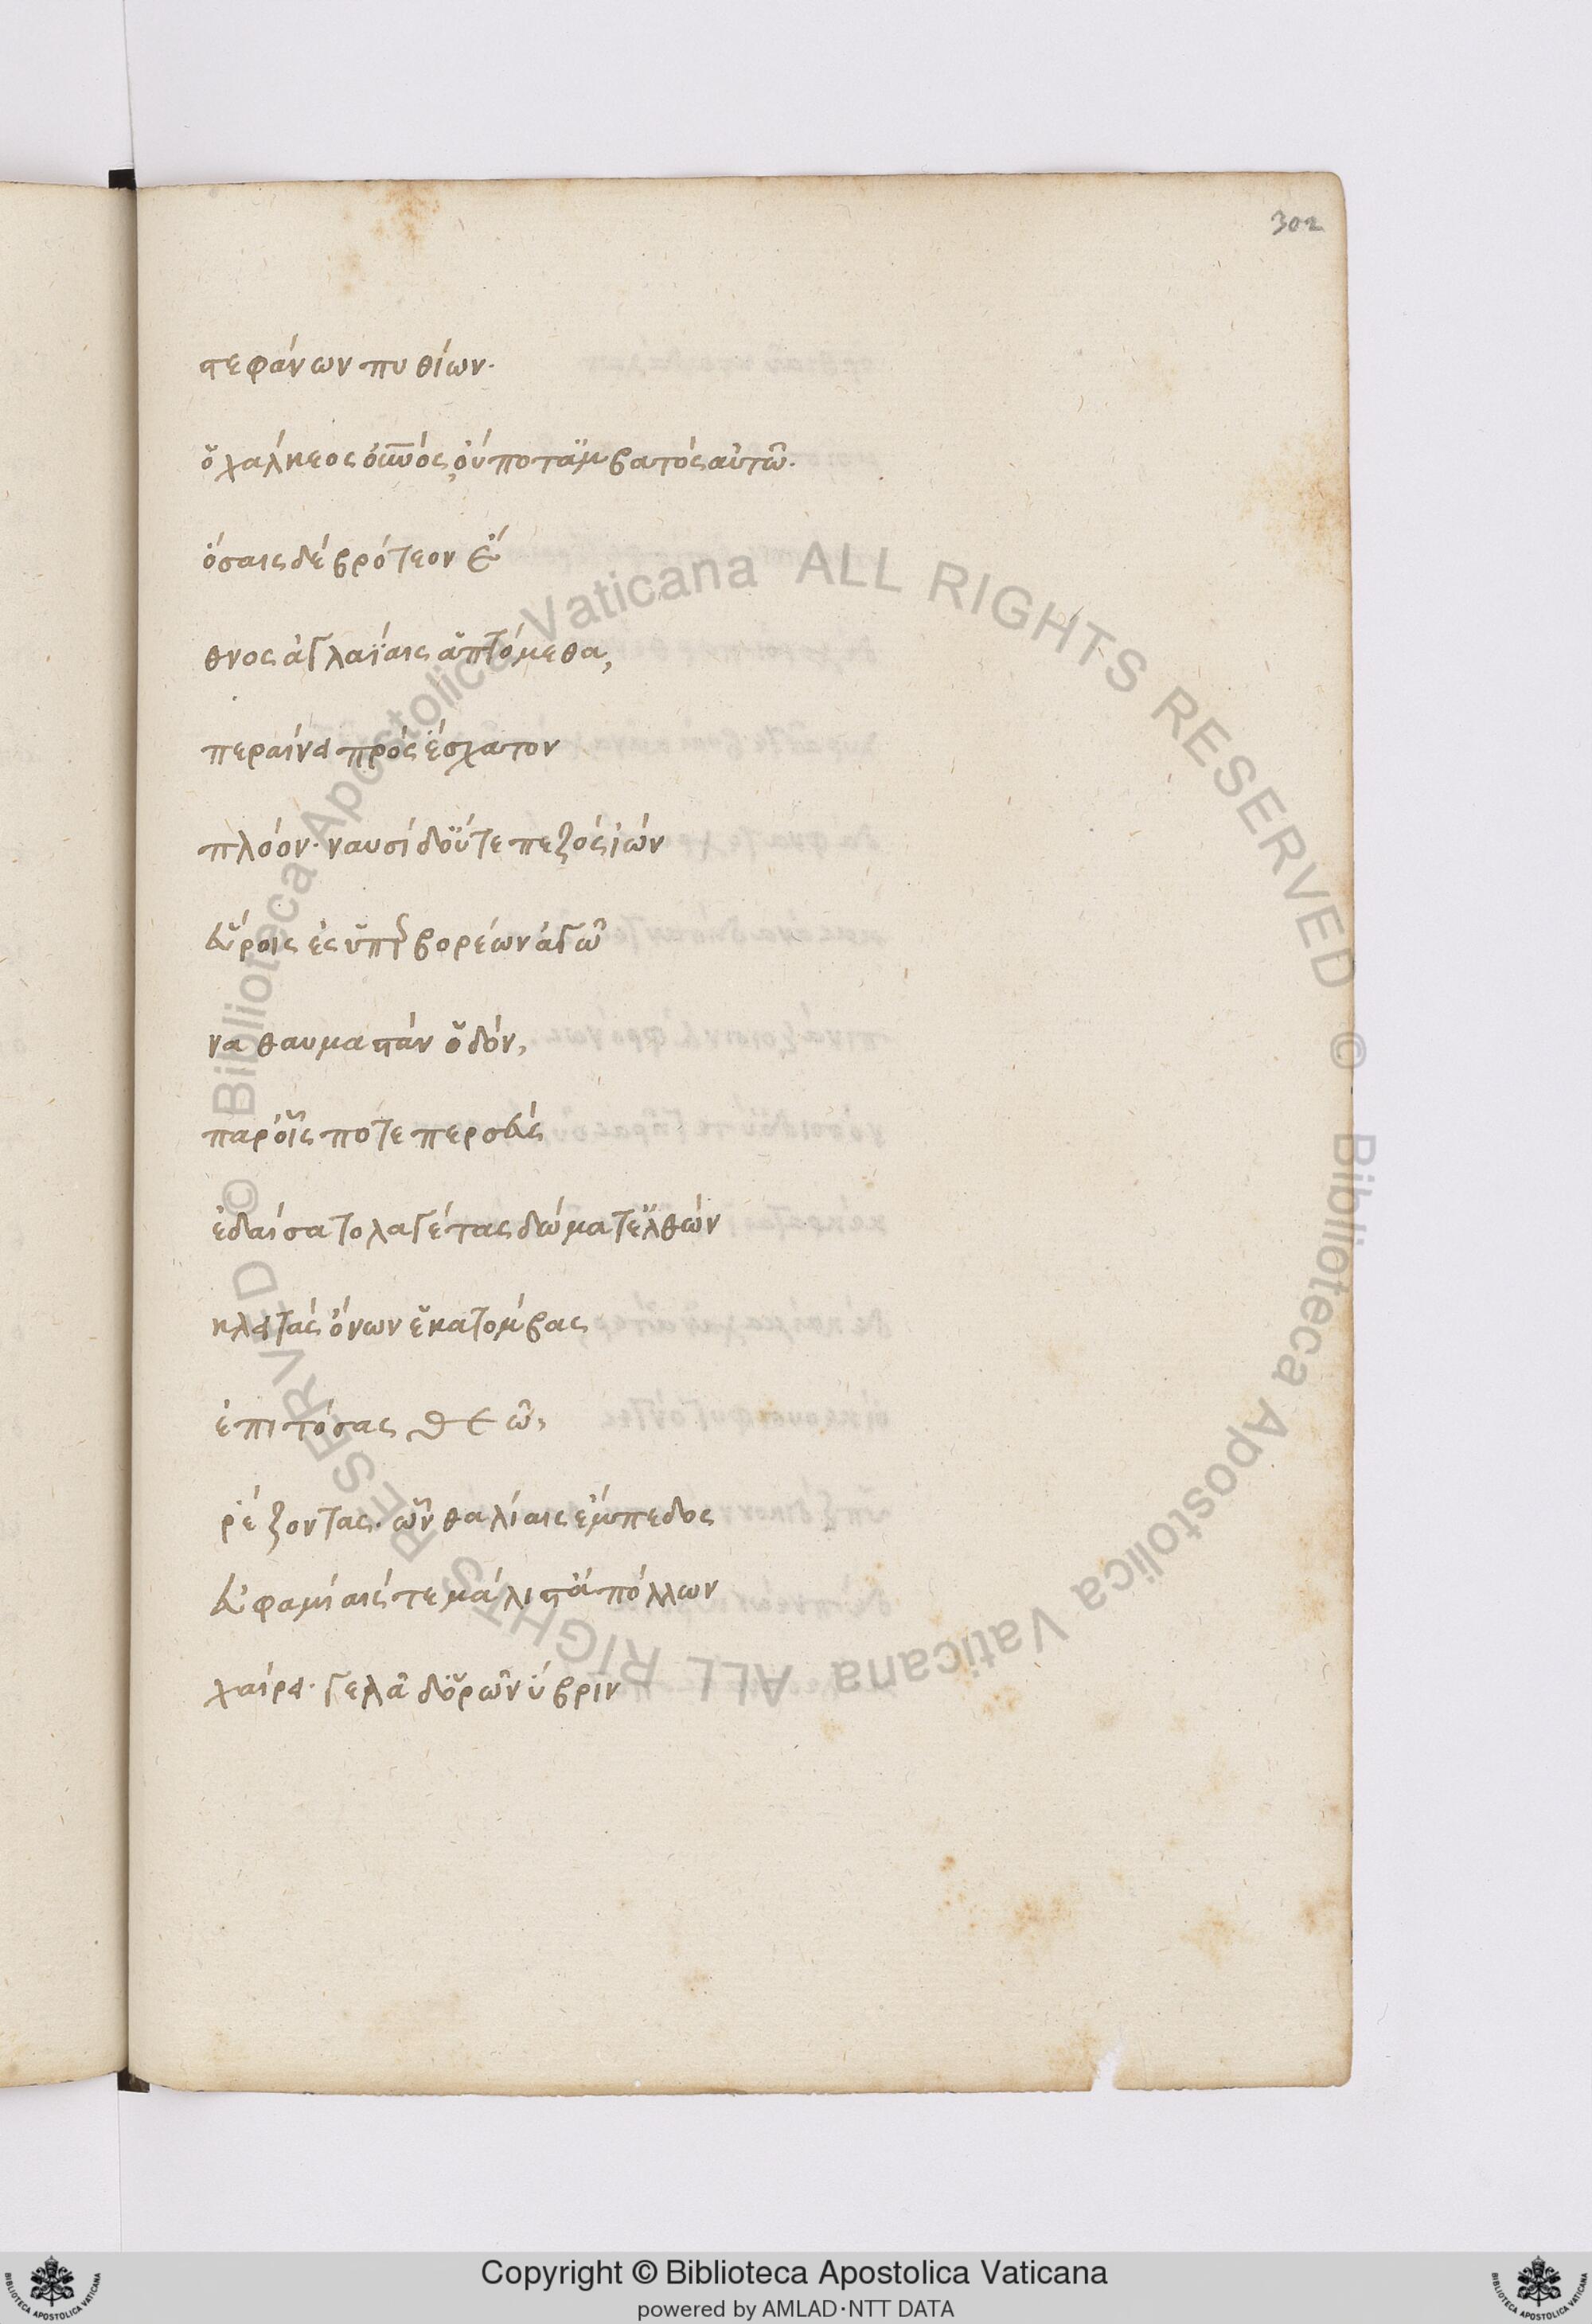 302
στεφάνων πυθίων·
ὁ χάλκεος οὐνός, οὔποτ' ἀμβατός αὐτῶ·
ὅσαις δέ βρότεον ἔ
θνος ἀγλαΐαις ἁπτόμεθα,
περαίνει πρός ἔσχατον
πλόον· ναυσί δ' οὔτε πεζός ἰών
εὕροις ἐς ὑπερβορέων ἀγῶ
να θαυμαστάν ὁδόν,
παρ' οἷς ποτε περσεύς
ἐδαίσατο λαγέτας δώματ' ἐλθών
κλειτάς ὄνων ἑκατόμβας
ἐπιτόσας θεῶ,
ῥέζοντας· ὧν θαλίαις ἔμπεδος
εὐφαμίαις τε μάλιστ' ἀπόλλων
χαίρει· γελᾶ δ' ὁρῶν ὕβριν
Copyright © Biblioteca Apostolica Vaticana
powered by AMLAD·NTT DATA
© Biblioteca Apostolica Vaticana ALL RIGHTS RESERVED
© Biblioteca Apostolica Vaticana ALL RIGHTS RESERVED
BIBLIOTECA APOSTOLICA VATICANA
BIBLIOTECA APOSTOLICA VATICANA